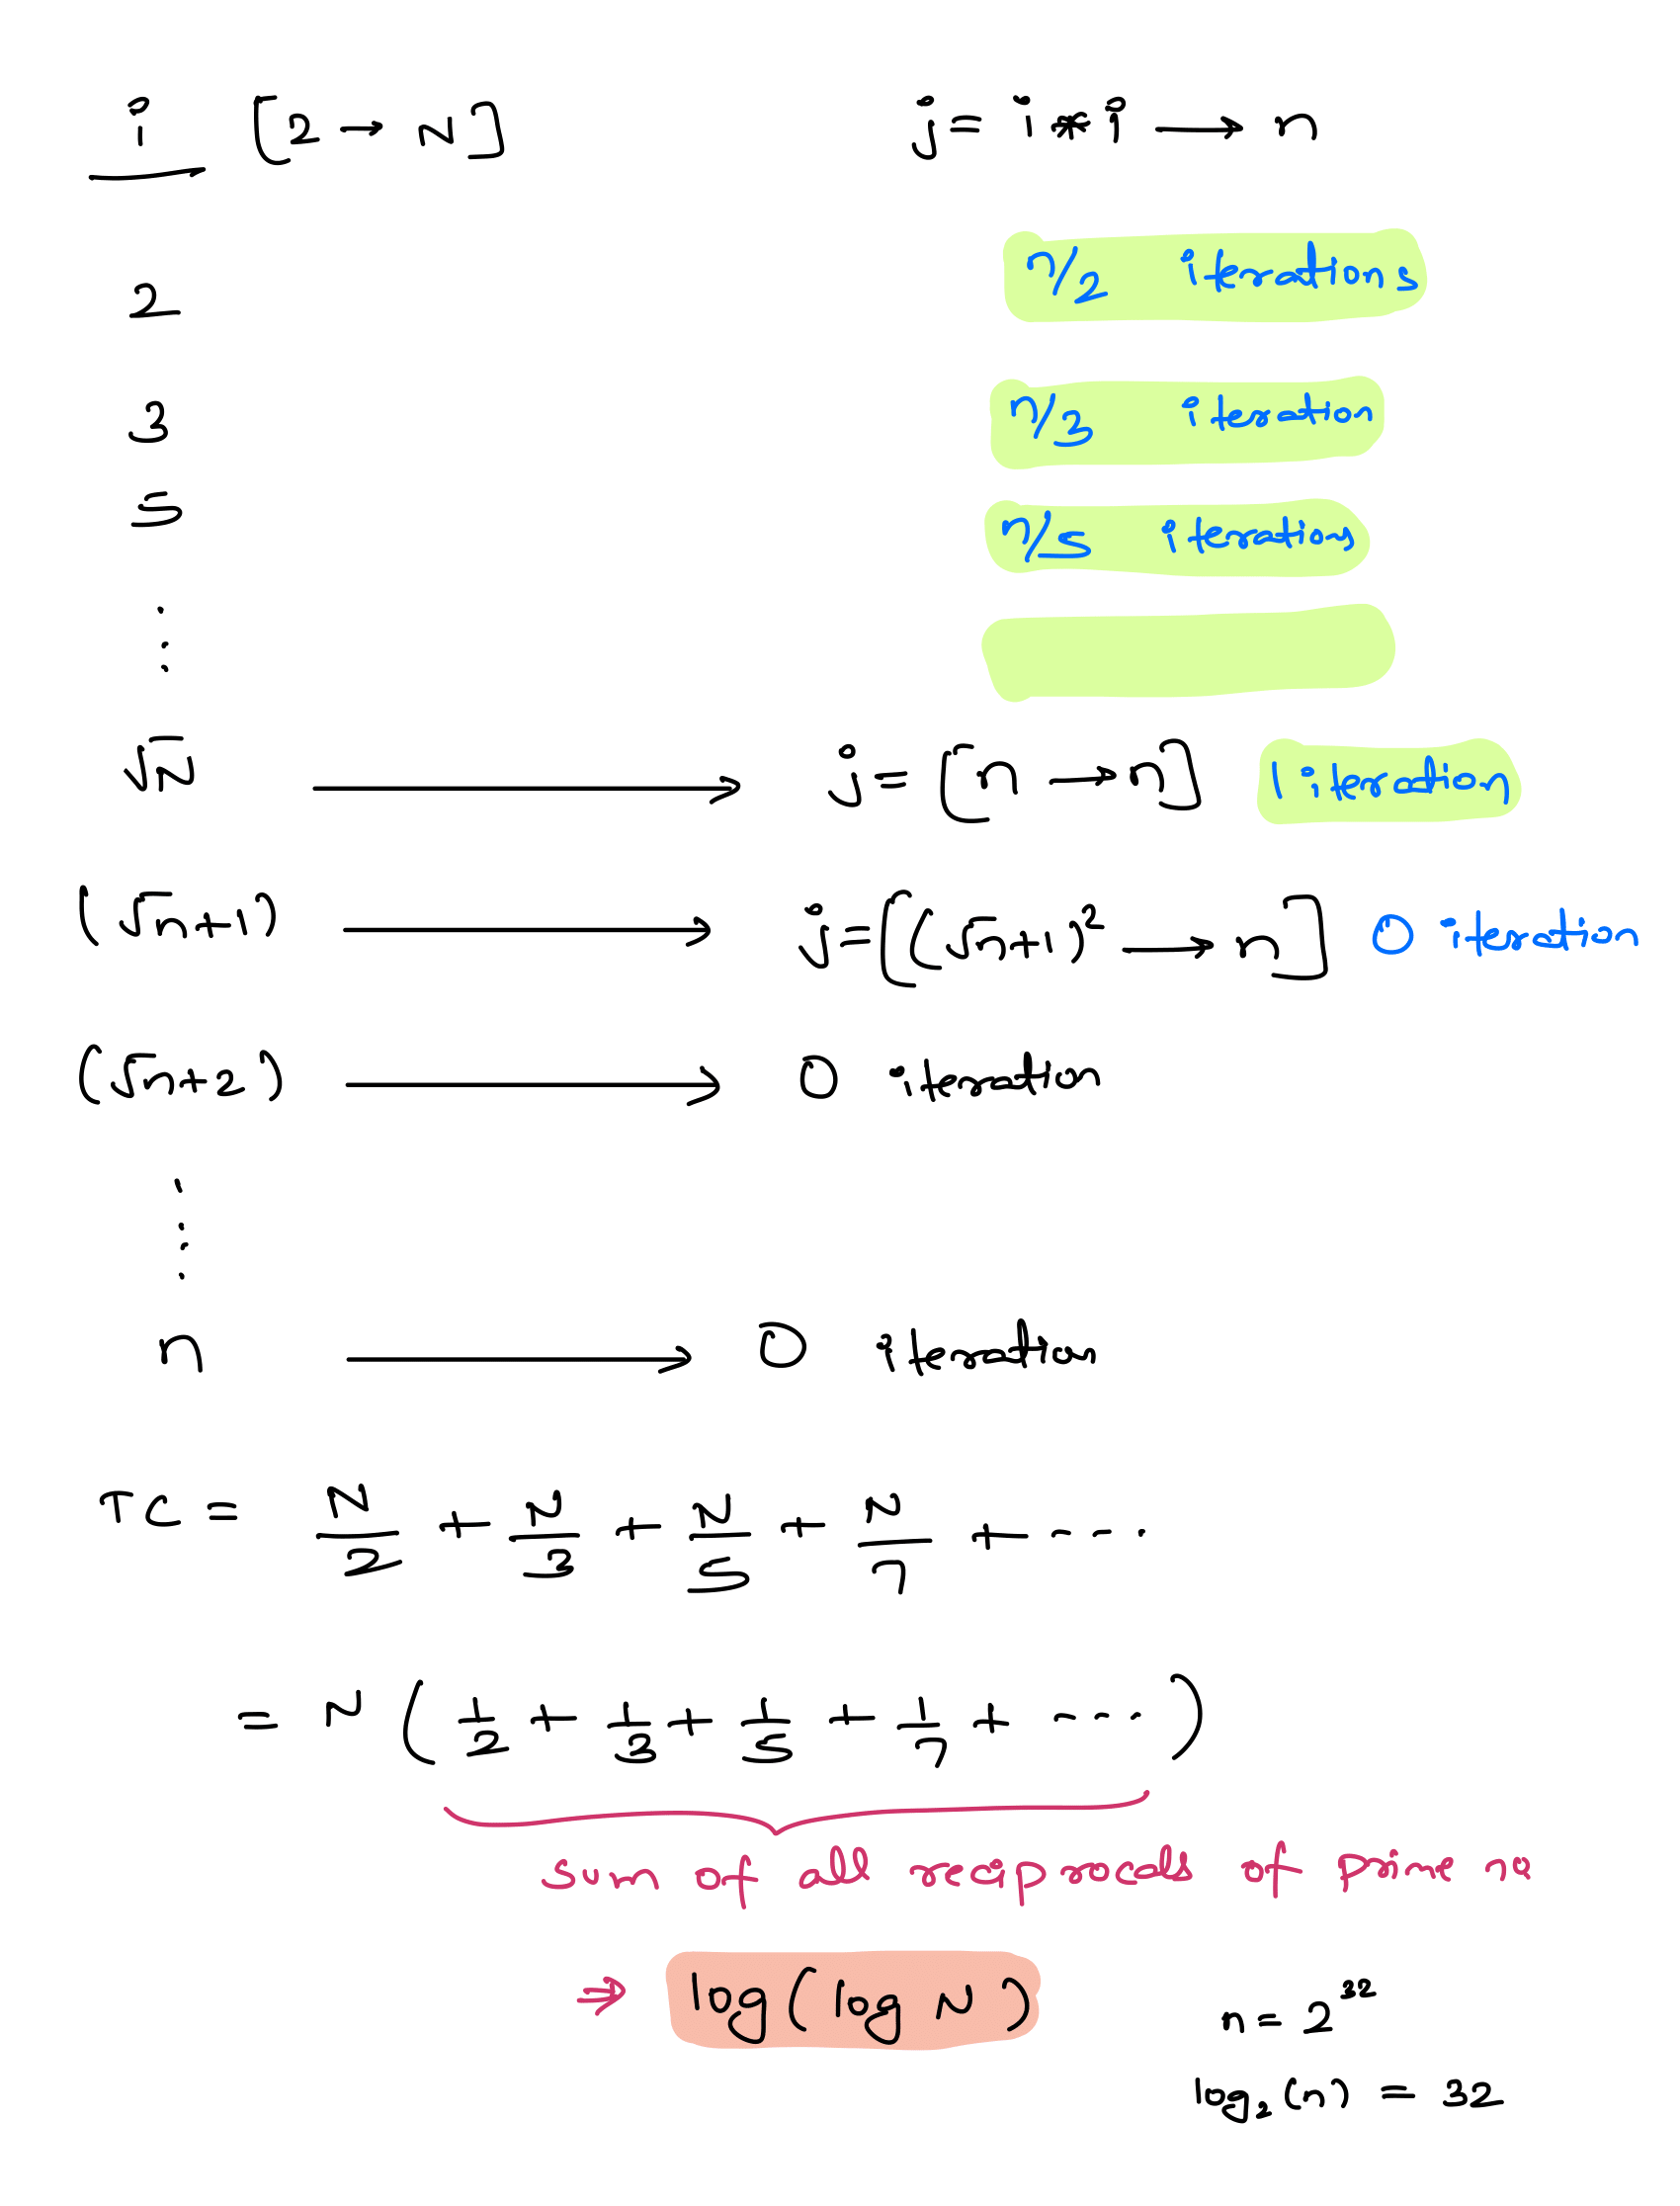 i [2 → N] j = i * i → n
2 n/2 iterations
3 n/3 iteration
5 n/5 iterations
⋮
√N → j = [n → n] 1 iteration
(√n+1) → j = [(√n+1)² → n] 0 iteration
(√n+2) → 0 iteration
⋮
n → 0 iteration
TC = N/2 + N/3 + N/5 + N/7 + ....
= N (1/2 + 1/3 + 1/5 + 1/7 + ....)
sum of all reciprocals of prime no
⇒ log(log N)
n = 2³²
log₂(n) = 32